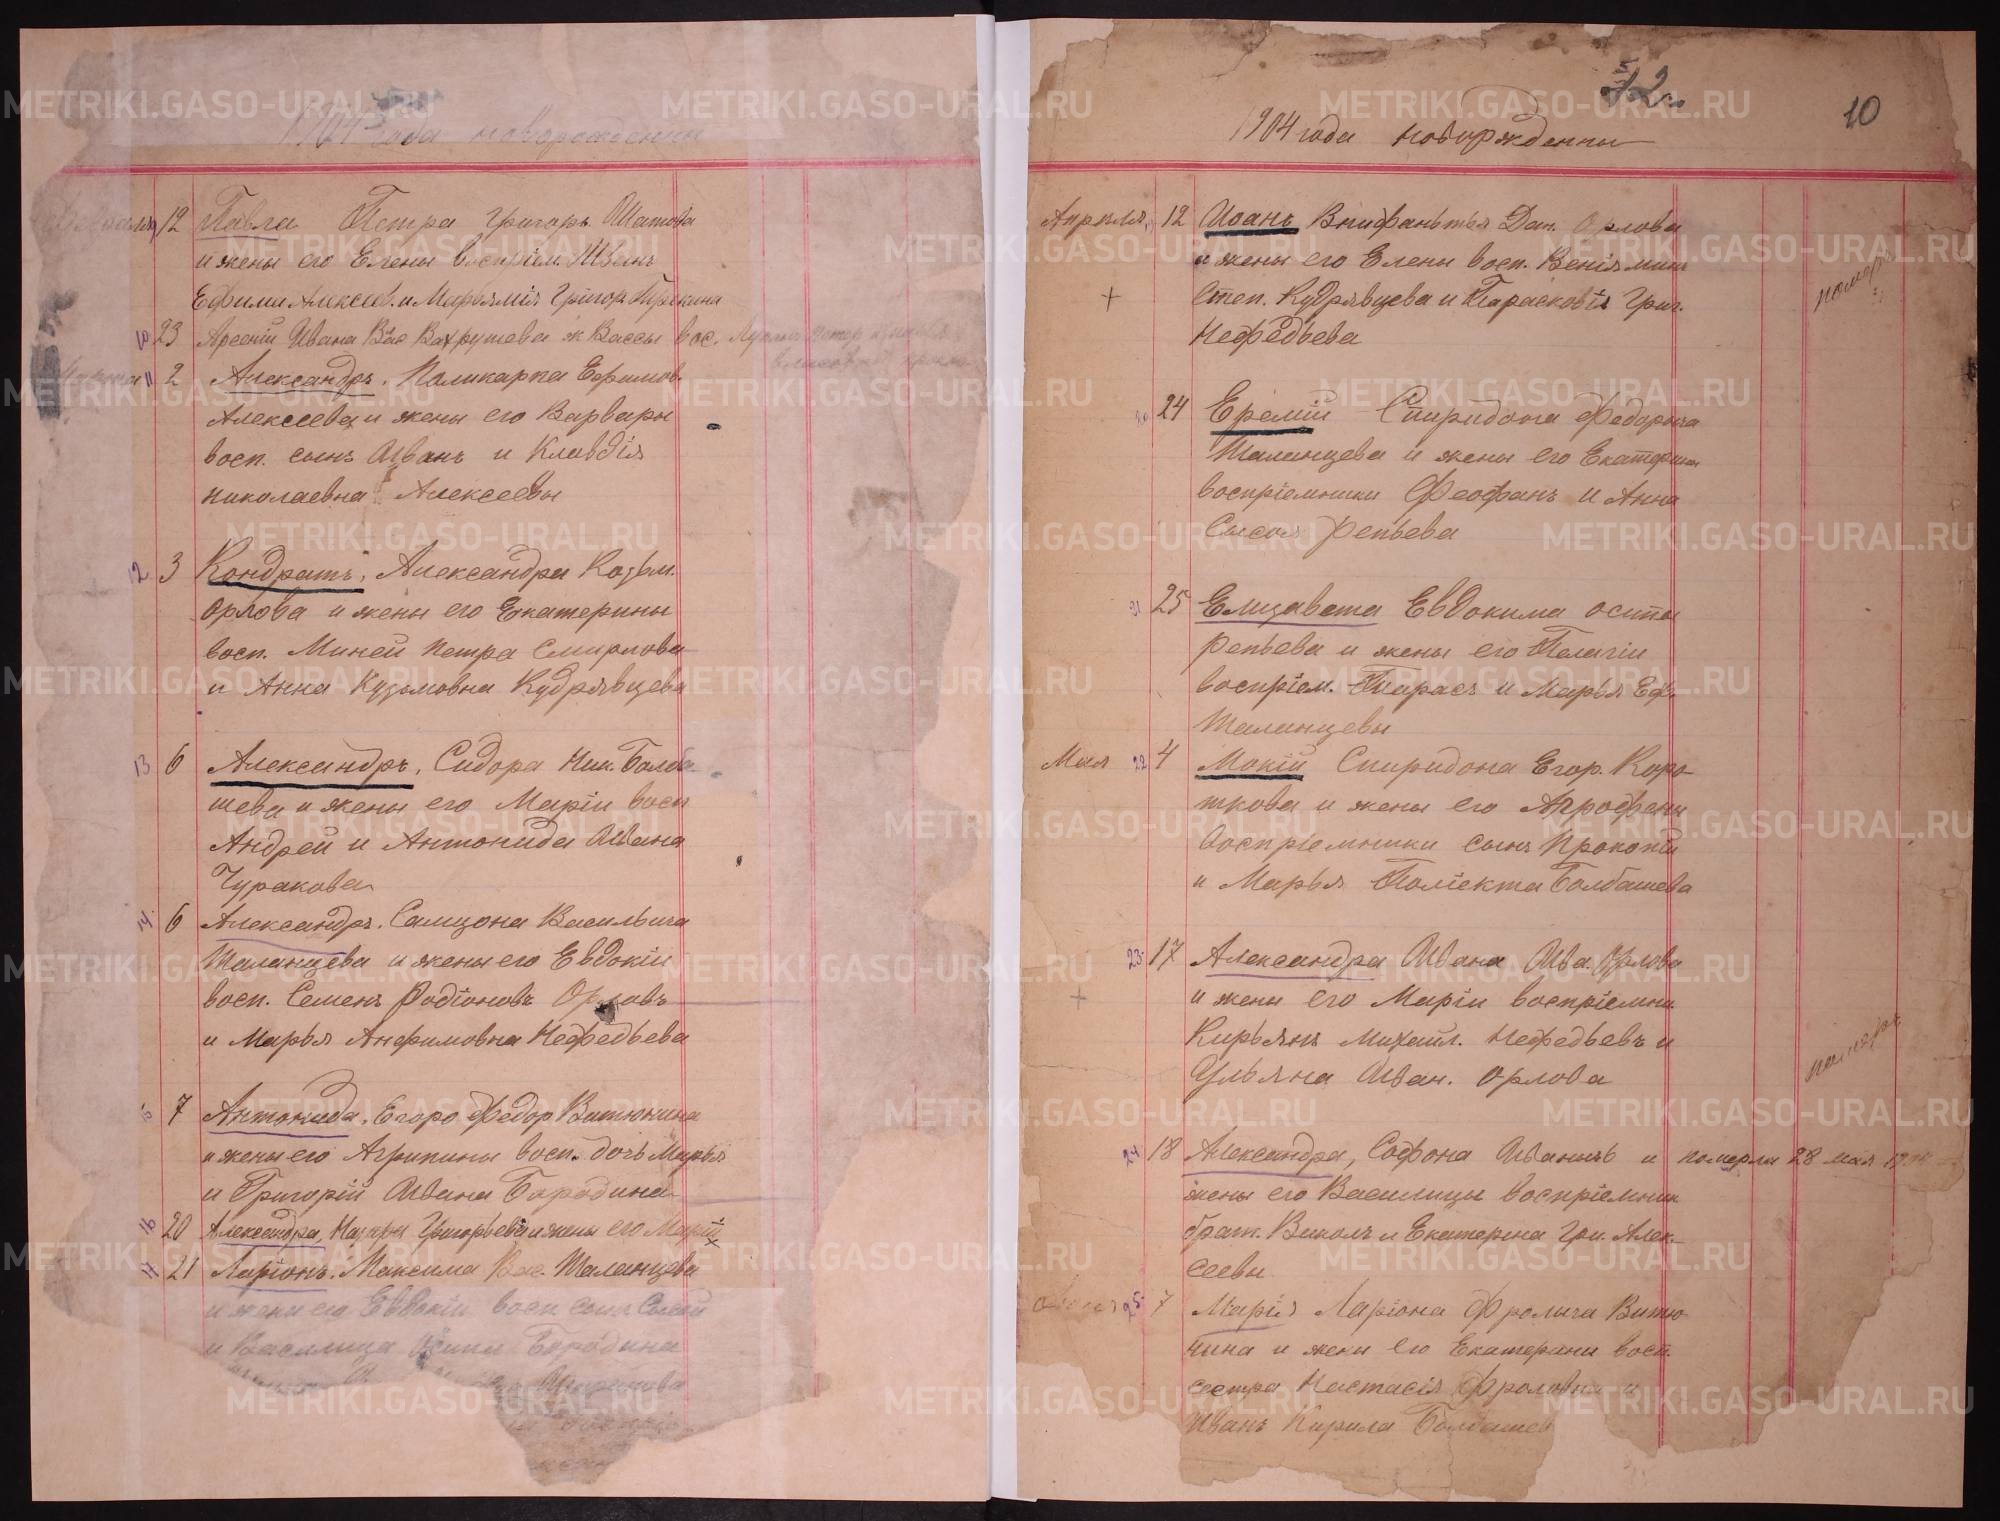 1904 года новорожденны
Февраля 12 Павла Петра Григорь. Шатова
и жены его Елены воспріем.
Ефима Алексѣев. и Марьямія Григор.
10 23 Арсеній Ивана Вас Вахрушева ж Вассы вос.
Марта 11 2 Александръ. Поликарпа Ефимов.
Алексеева и жены его Варвары
восп. сынъ Иванъ и Клавдія
николаевна Алексеевы
12 3 Кондратъ, Александра Козьм.
Орлова и жены его Екатерины
восп. Миней петра Смирнова
и Анна Кузьмовна Кудрявцева
13 6 Александръ, Сидора Ник. Балба-
шева и жены его Маріи восп
Андрей и Антонида Ивана
Чуракова
14 6 Александръ. Самсона Васильича
Шаланцева и жены его Евдокіи
восп. Семенъ Родіоновъ Орловъ
и Марья Анфимовна Нефедьева
15 7 Антонида, Егоро Федор Витюнина
и жены его Агрипины восп. дочь Марья
и Григорій Ивана Бородина
16 20 Александра, Назара Григорьева и жены его Маріи
17 21 Ларіонъ. Максима Вас. Шаланцева
и жены его Евдокіи восп сынъ
и Василица Бородина
1904 года новорждены
10
Апреля 12 Иоанъ Епифантья Дан. Орлова
и жены его Елены восп. Веніямин
Степ. Кудрявцева и Парасковія Григ.
Нефедьева
померъ
20 24 Еремій Спиридона Федорыча
Шаланцева и жены его Екатерин
воспріемники Феофанъ и Анна
Сысоя репьева
21 25 Елизавета Евдокима осипа
репьева и жены его Пелагіи
воспріем. Тарасъ и Марья Еф.
Шаланцевы
Мая 22 4 Мокій Спиридона Егор. Коро-
ткова и жены его Агрофены
воспріемники сынъ Прокопій
и Марья Поліекта Балбашева
23 17 Александра Ивана Ива. Орлова
и жены его Маріи воспріемни
Кирьянъ Михайл. Нефедьевъ и
Ульяна Иван. Орлова
померъ
24 18 Александра, Софона Иванывъ и померла 28 мая
жены его Василицы воспріемник
брат. Виколъ и Екатерина Гри. Алек-
сеевы
25 7 Марія Ларіона Фролыча Витю-
нина и жены его Екатерины восп.
сестра Настасія Фроловна и
Иванъ Кирила Балбашев